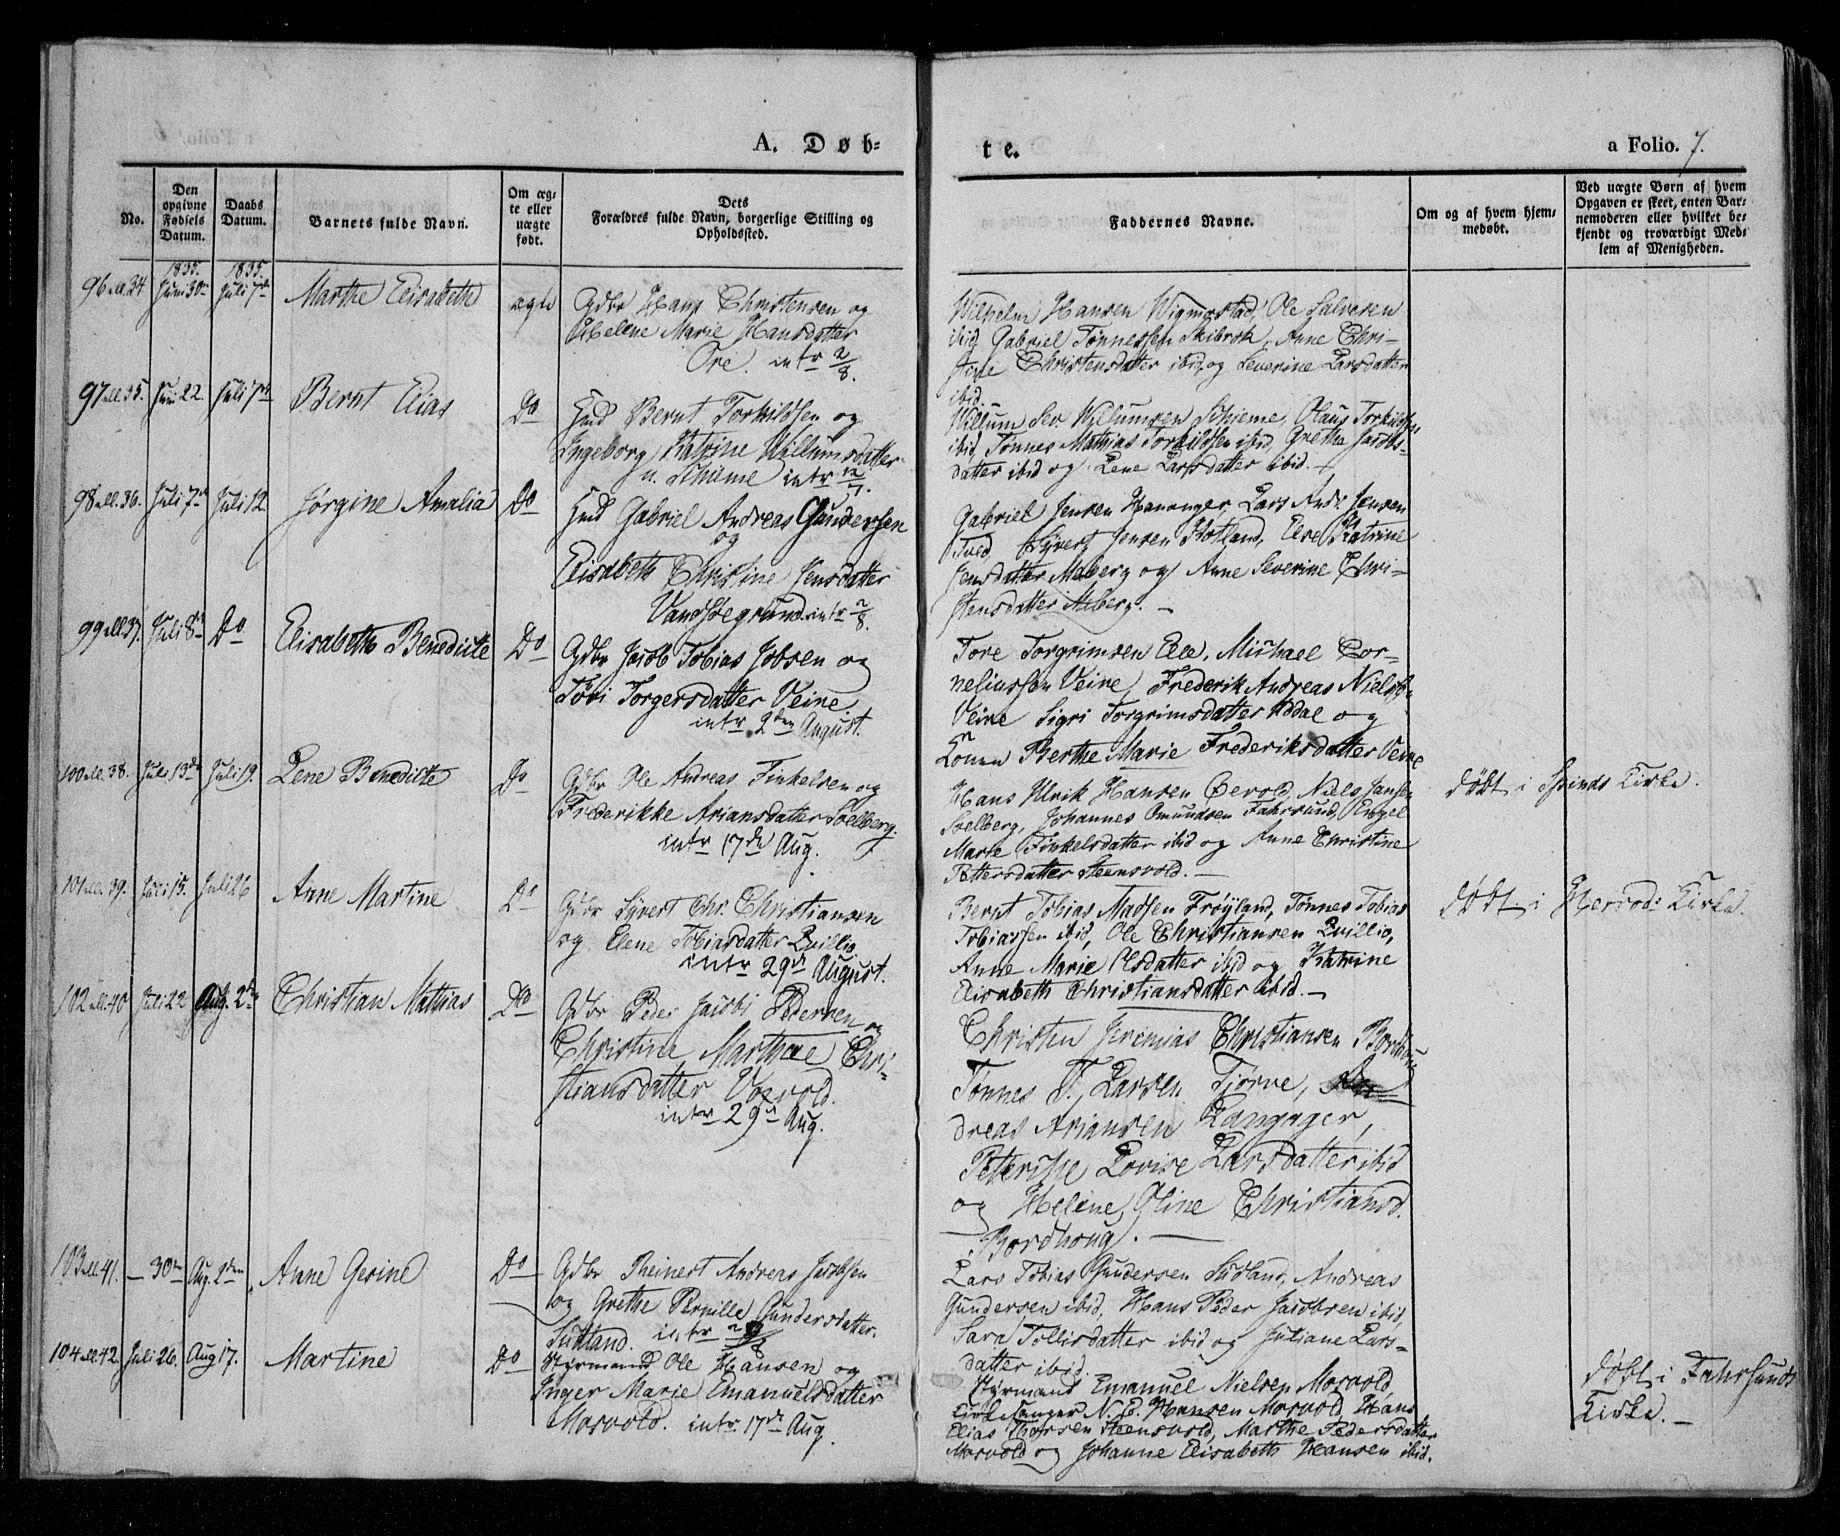 A. Døb=
te.
a Folio. 7.
No.
Den opgivne Fødsels Datum.
Daabs Datum.
Barnets fulde Navn.
Om æg= te eller uægte født.
Dets Forældres fulde Navn, borgerlige Stilling og Opholdssted.
Faddernes Navne.
Om og af hvem hjem= medøbt.
Ved uægte Børn af hvem Opgaven er skeet, enten Bar= nemoderen eller hvilket be= kjendt og troværdigt Med= lem af Menigheden.
1835. 1835.
96 ell. 34 Juni 30 Juli 7de Marthe Elisabeth ægte Gdbr Hans Christensen og
Abelene Marie Hansdatter
Ore. intr 2/8.
Wilhelm Hansen Wigmostad, Ole Salvesen
ibid, Gabriel Tønnessen Skibrok, Anne Chri-
stine Christensdatter ibid, og Severine Larsdatter
ibid.
97 ell. 35. Juni 22 Juli 7de Bernt Elias Do Hmd Bernt Torkildsen og
Ingeborg Katrine Willumsdatter
u. Schieme intr 12/7.
Willum Sev Wilumsen Schjeme, Olaus Torkildsen
ibid, Tønnes Mathias Torkildsen ibid, Grethe Jacobs-
datter ibid og Lene Larsdatter ibid.
98 ell. 36. Juli 7de Juli 12 Jørgine Amalia Do Hmd Gabriel Andreas Gundersen
og
Elisabeth Christine Jensdatter
Vandsøegrund intr 2/8.
Gabriel Jensen Hananger, Lars Andr. Jensen
Tved, Syvert Jensen Hotland, Else Katrine
Jensdatter Aaberg og Anne Severine Chri-
stensdatter Aaberg. -
99 ell. 37. Juli 8de Do Elisabeth Benedicte Do Gdbr Jacob Tobias Jobsen og
Tøri Torgersdatter Veine
intr 2den August.
Tore Torgrimsen Elle, Michael Cor-
neliussen Veine, Frederik Andreas Nielsen
Veine Sigri Torgrimsdatter Uddal og
Konen Berthe Marie Frederiksdatter Veine
100 ell. 38. Juli 13de Juli 19. Lene Benedicte Do Gdbr Ole Andreas Finkelsen og
Frederikke Ariansdatter Soelberg.
intr 17de Aug.
Hans Ulrik Hansen Øevold, Niels Jansen
Soelberg, Johannes Omundsen Fahrsund, Engel
Marie Finkelsdatter ibid og Anne Christine
Pettersdatter Steensvold. -
døbt i Spinds Kirke.
101 ell. 39. Juli 15. Juli 26 Anne Martine Do Gdbr Syvert Chr. Christiansen
og Elene Tobiasdatter Qvillio
intr 29de August.
Bernt Tobias Madsen Frøyland, Tønnes Tobias
Tobiassen ibid, Ole Christiansen Qvillio,
Anne Marie Olsdatter ibid og Katrine
Elisabeth Christiansdatter ibid. -
døbt i Herrods Kirke.
102 ell. 40 Juli 22 Aug. 2den Christian Mathias Do Gdbr Peder Jacob Pedersen og
Christine Marthae Chri-
stiansdatter Vosvold.
intr 29de Aug.
Christen Jeremias Christiansen Bordhoug
Tønnes T. Larsen Tjørve, An-
dreas Ariansen Langager,
Petersche Lovise Larsdatter ibid
og Helene Oline Christiansd.
Bordhoug. -
103 ell. 41. - 30te Aug. 2den Anne Gesine Do Gdbr Reinert Andreas Jacobsen
og Grethe Pernille Gundersdatter
Sudland. intr
Lars Tobias Gundersen Sudland, Andreas
Gundersen ibid, Hans Peder Jacobsen ibid,
Sara Tollisdatter ibid og Juliane Lars-
datter ibid
104 ell. 42. Juli 26. Aug 17. Martine Do Styrmand Ole Hansen og
Inger Marie Emanuelsdatter
Mosvold. intr 17de Aug.
Styrmand Emanuel Nielsen Mosvold
Kirkesanger N. E. Hansen Mosvold, Hans
Elias Thorsen Steensvold, Marthe Pedersdatter
Mosvold og Johanne Elisabeth Hansen ibid.
døbt i Fahrsunds
Kirke. -